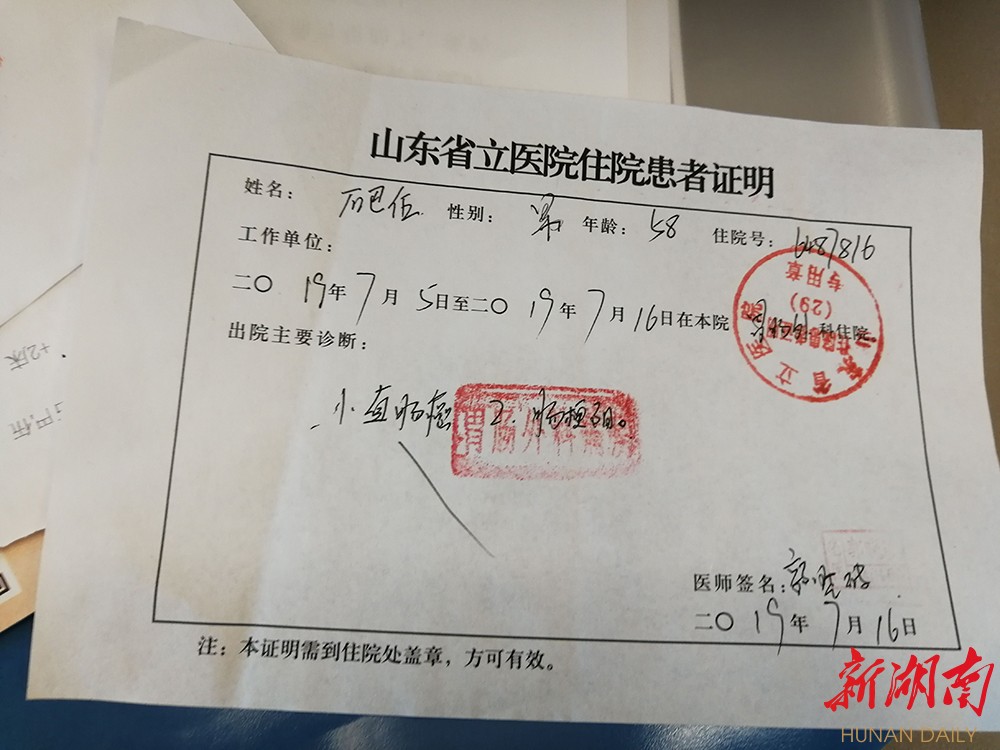 山东省立医院住院患者证明
姓名： 性别：男 年龄：58 住院号：6487816
工作单位：
二〇19年7月5日至二〇19年7月16日在本院胃肠外科住院。
出院主要诊断：
1、直肠癌 2、肠梗阻。
胃肠外科
省立医院
(29)
专用章
医师签名：
二〇19年7月16日
注：本证明需到住院处盖章，方可有效。
+2床
新湖南
HUNAN DAILY